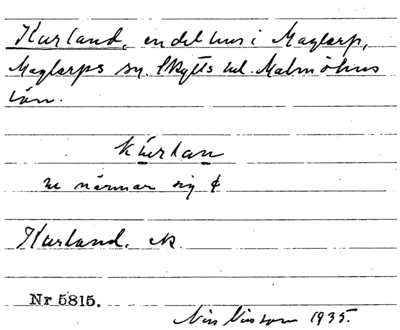 Kurland, en del hus i Maglarp,
Maglarps sn. Skytts hd. Malmöhus
län.
kúrlan
u närmar sig ɸ
Kurland. ek
Nr 5815.
Nils Nilsson 1935.